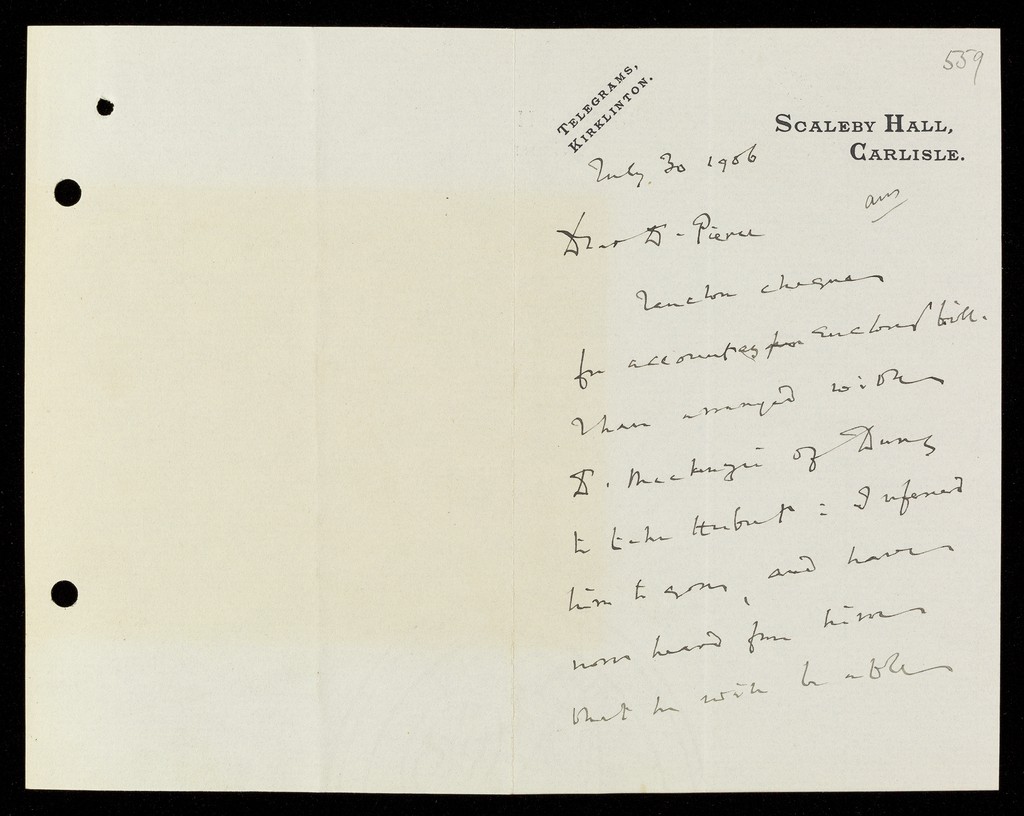 559
TELEGRAMS,
KIRKLINTON.
SCALEBY HALL,
CARLISLE.
July 30 1906
ans
Dear Dr. Pierce
I enclose cheque
for account as per enclosed bill.
I have arranged with
Dr. Mackenzie of
to take Hubert : I referred
him to you, and have
now heard from him
that he will be able